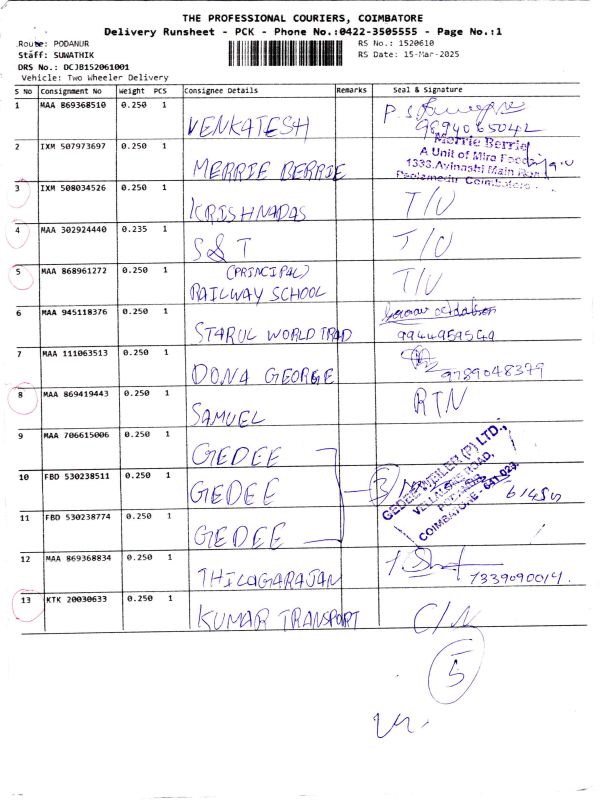 THE PROFESSIONAL COURIERS, COIMBATORE
Delivery Runsheet - PCK - Phone No.:0422-3505555 - Page No.:1
Route: PODANUR RS No.: 1520610
Staff: SUWATHIK RS Date: 15-Mar-2025
DRS No.: DCJB152061001
Vehicle: Two Wheeler Delivery
S No Consignment No Weight PCS Consignee Details Remarks Seal & Signature
1 MAA 869368510 0.250 1 VENKATESH
9894065042
2 IXM 507973697 0.250 1 MERRIE BERRIE
Merrie Berrie
A Unit of Mira Foods
1333, Avinashi Main Road
Peelamedu Coimbatore
3 IXM 508034526 0.250 1 KRISHNADAS T/U
4 MAA 302924440 0.235 1 S&T T/U
5 MAA 868961272 0.250 1 (PRINCIPAL)
RAILWAY SCHOOL T/U
6 MAA 945118376 0.250 1 STARUL WORLD TRAD
7 MAA 111063513 0.250 1 DONA GEORGE 9789048379
8 MAA 869419443 0.250 1 SAMUEL RTN
9 MAA 706615006 0.250 1 GEDEE
10 FBD 530238511 0.250 1 GEDEE 3
GEDEE WEILER (P) LTD.,
VELLALORE ROAD,
PODANUR,
COIMBATORE - 641 023
11 FBD 530238774 0.250 1 GEDEE
12 MAA 869368834 0.250 1 THILAGARAJAN 7339090014.
13 KTK 20030633 0.250 1 KUMAR TRANSPORT C/N
5